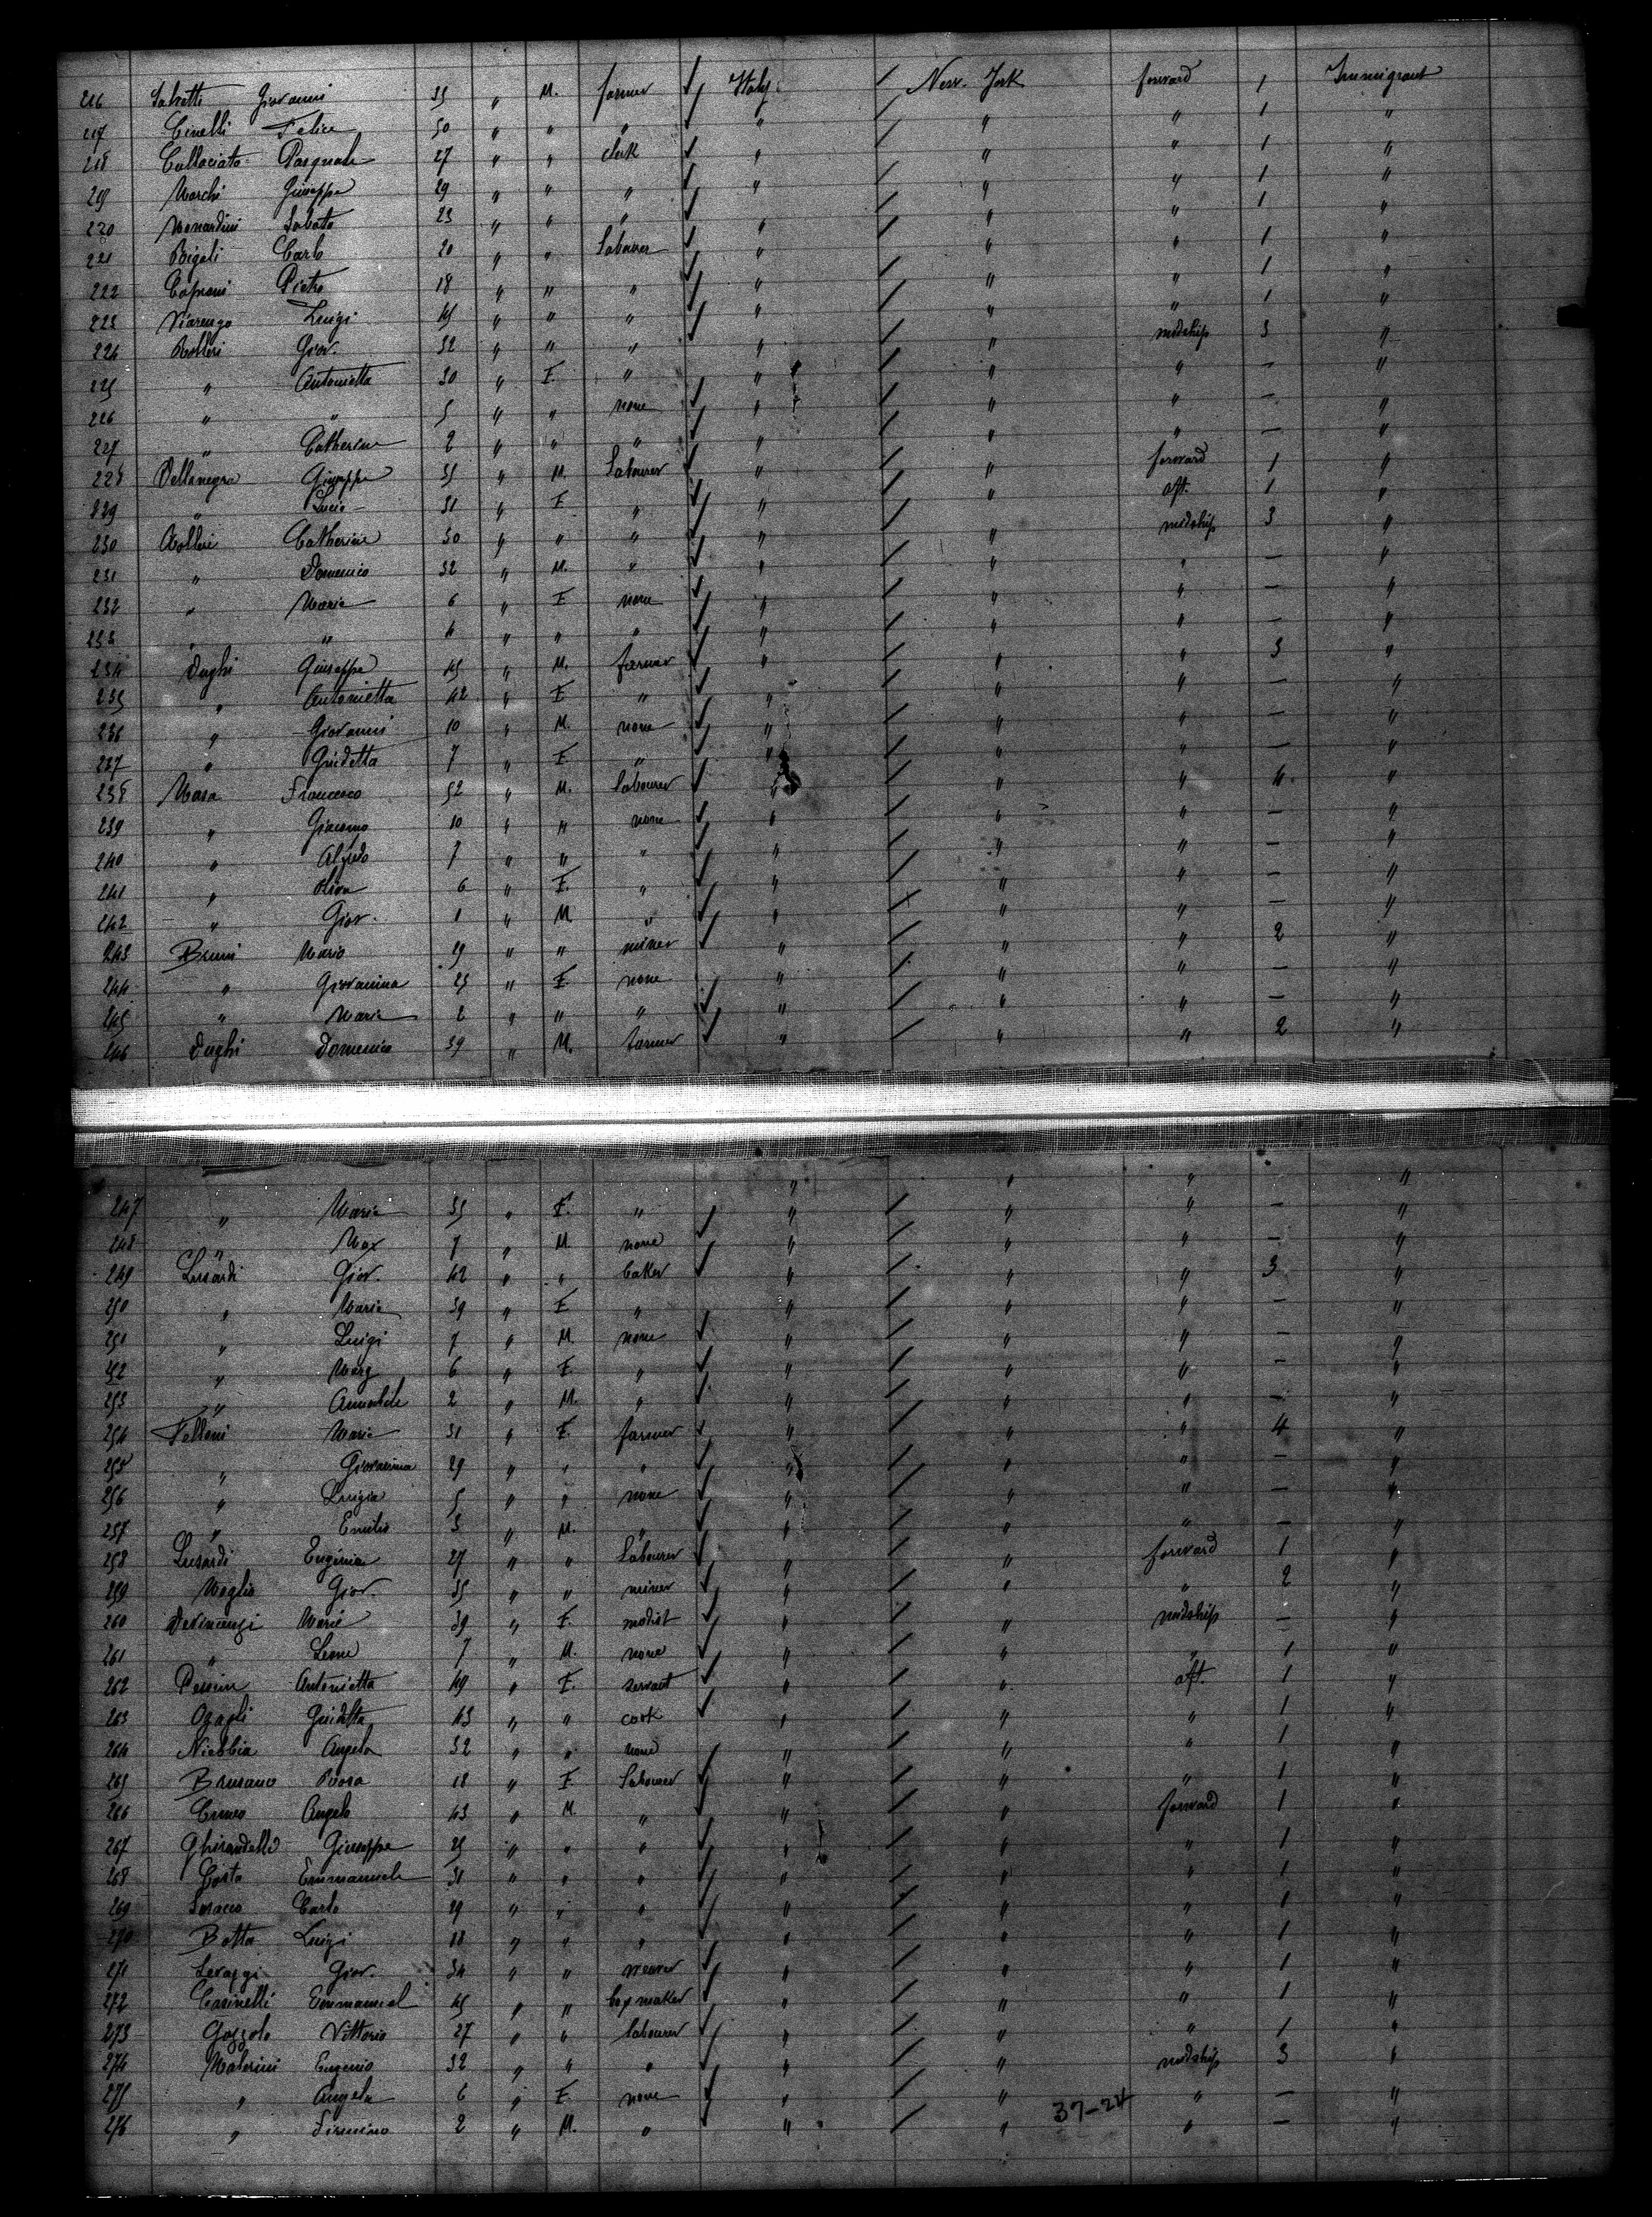 216 Salvetti Giovanni 35 " M. farmer Italy New. York forward 1 Immigrant
217 Cinelli Felice 50 " " " " " " 1 "
218 Collaciato Pasquale 27 " " clerk " " " 1 "
219 Marchi Giuseppe 29 " " " " " " 1 "
220 Menardini Sabato 23 " " " " " " 1 "
221 Bigeli Carlo 20 " " Labourer " " " 1 "
222 Caprani Pietro 18 " " " " " " 1 "
223 Viarengo Luigi 45 " " " " " " 1 "
224 Rolleri Giov. 32 " " " " " midship 3 "
225 " Antonietta 30 " F. " " " " — "
226 " " 5 " " none " " " — "
227 " Catherine 2 " " " " " " — "
228 Dellanegra Giuseppe 35 " M. Labourer " " forward 1 "
229 " Lucia 31 " F. " " " aft. 1 "
230 Rolleri Catherine 30 " " " " " midship 3 "
231 " Domenico 32 " M. " " " " — "
232 " Maria 6 " F none " " " — "
233 " " 4 " " " " " " — "
234 Dughi Giuseppe 45 " M. farmer " " " 3 "
235 " Antonietta 42 " F " " " " — "
236 " Giovanni 10 " M. none " " " — "
237 " Guidetta 7 " F. " " " " — "
238 Masa Francesco 52 " M. Labourer " " " 4 "
239 " Giacomo 10 " " none " " " — "
240 " Alfredo 7 " " " " " " — "
241 " 6 " F. " " " " — "
242 " Giov. 1 " M. " " " " — "
243 Bruni Mario 29 " " miner " " " 2 "
244 " Giovannina 25 " F. none " " " — "
245 " Maria 2 " " " " " " — "
246 Dughi Domenico 39 " M. farmer " " " 2 "
" " " "
247 " Maria 35 " F. " " " " — "
248 " Max 7 " M. none " " " — "
249 Lusardi Giov. 42 " " baker " " " 3 "
250 " Maria 39 " F " " " " — "
251 " Luigi 7 " M. none " " " — "
252 " Marg 6 " F. " " " " — "
253 " 2 " M. " " " " — "
254 Felleni Maria 31 " F. farmer " " " 4 "
255 " Giovannina 29 " " " " " " — "
256 " Luigia 5 " " none " " " — "
257 " Emilio 3 " M. " " " " — "
258 Lusardi Eugenia 27 " " Labourer " " forward 1 "
259 Moglia Giov. 35 " " miner " " " 2 "
260 Devincenzi Marie 39 " F. modist " " midship — "
261 " Leone 7 " M. none " " " 1 "
262 Antonietta 49 " F. servant " " aft. 1 "
263 Guidetta 43 " " cook " " " 1 "
264 Niebbia Angela 32 " " none " " " 1 "
265 Brusano Rosa 18 " F. Labourer " " " 1 "
266 Cuneo Angelo 43 " M. " " " forward 1 "
267 Ghirardelli Giuseppe 25 " " " " " " 1 "
268 Costa Emmanuele 31 " " " " " " 1 "
269 Soracco Carlo 29 " " " " " " 1 "
270 Botta Luigi 18 " " " " " " 1 "
271 Levaggi Giov. 34 " " weaver " " " 1 "
272 Casinelli Emmanuel 45 " " box maker " " " 1 "
273 Gozzolo Vittorio 27 " " labourer " " " 1 "
274 Malerini Eugenio 32 " " " " " midship 3 "
275 " Angela 6 " F. none " " " — "
276 " Firmino 2 " M. " " " " — "
37-24